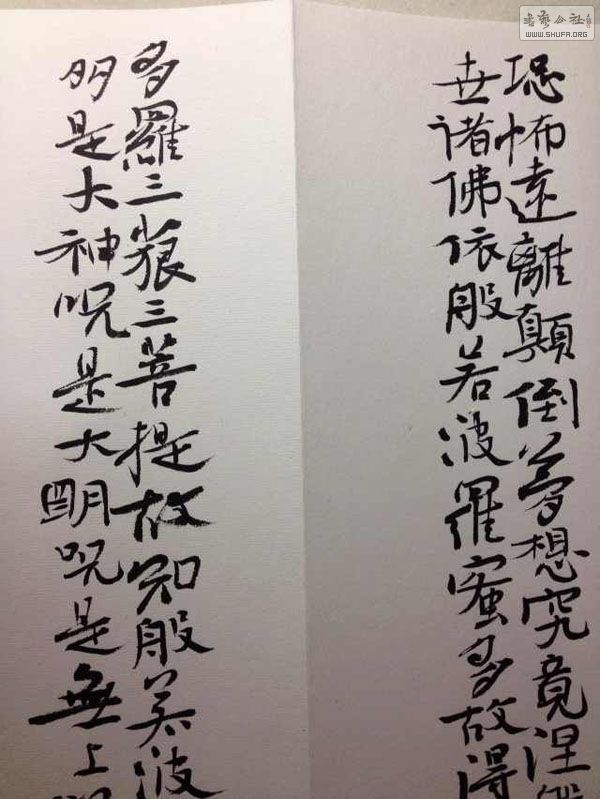 恐怖遠離顛倒夢想究竟涅
世諸佛依般若波羅蜜多故得
多羅三藐三菩提故知般若波
多是大神呪是大朙呪是無上
書藝公社
WWW.SHUFA.ORG